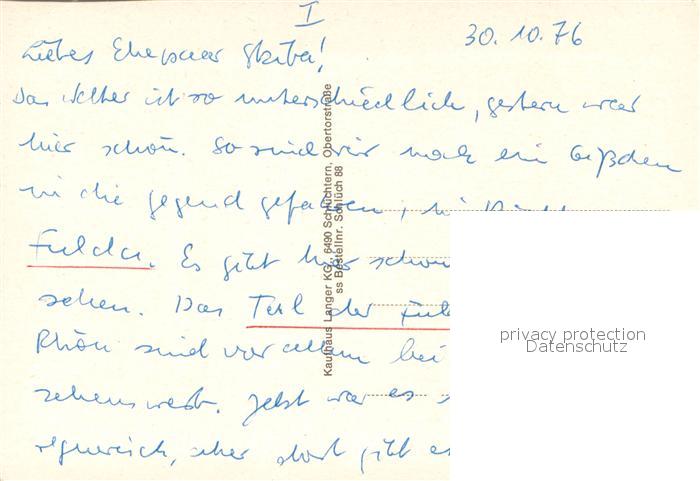 I
30.10.76
Liebes Ehepaar
Das Wetter ist so unterschiedlich, gestern war
hier schön. So sind wir noch ein bißchen
in die Gegend gefahren, in
Fulda. Es gibt hier schöne
sehen. Das Teil der
Rhön sind vor allem bei
sehenswert. Jetzt war es
regnerisch, aber dort gibt es
Kaufhaus Langer KG., 6490 Schlüchtern, Obertorstraße
ss Bestellnr. Schlüch 88
privacy protection
Datenschutz